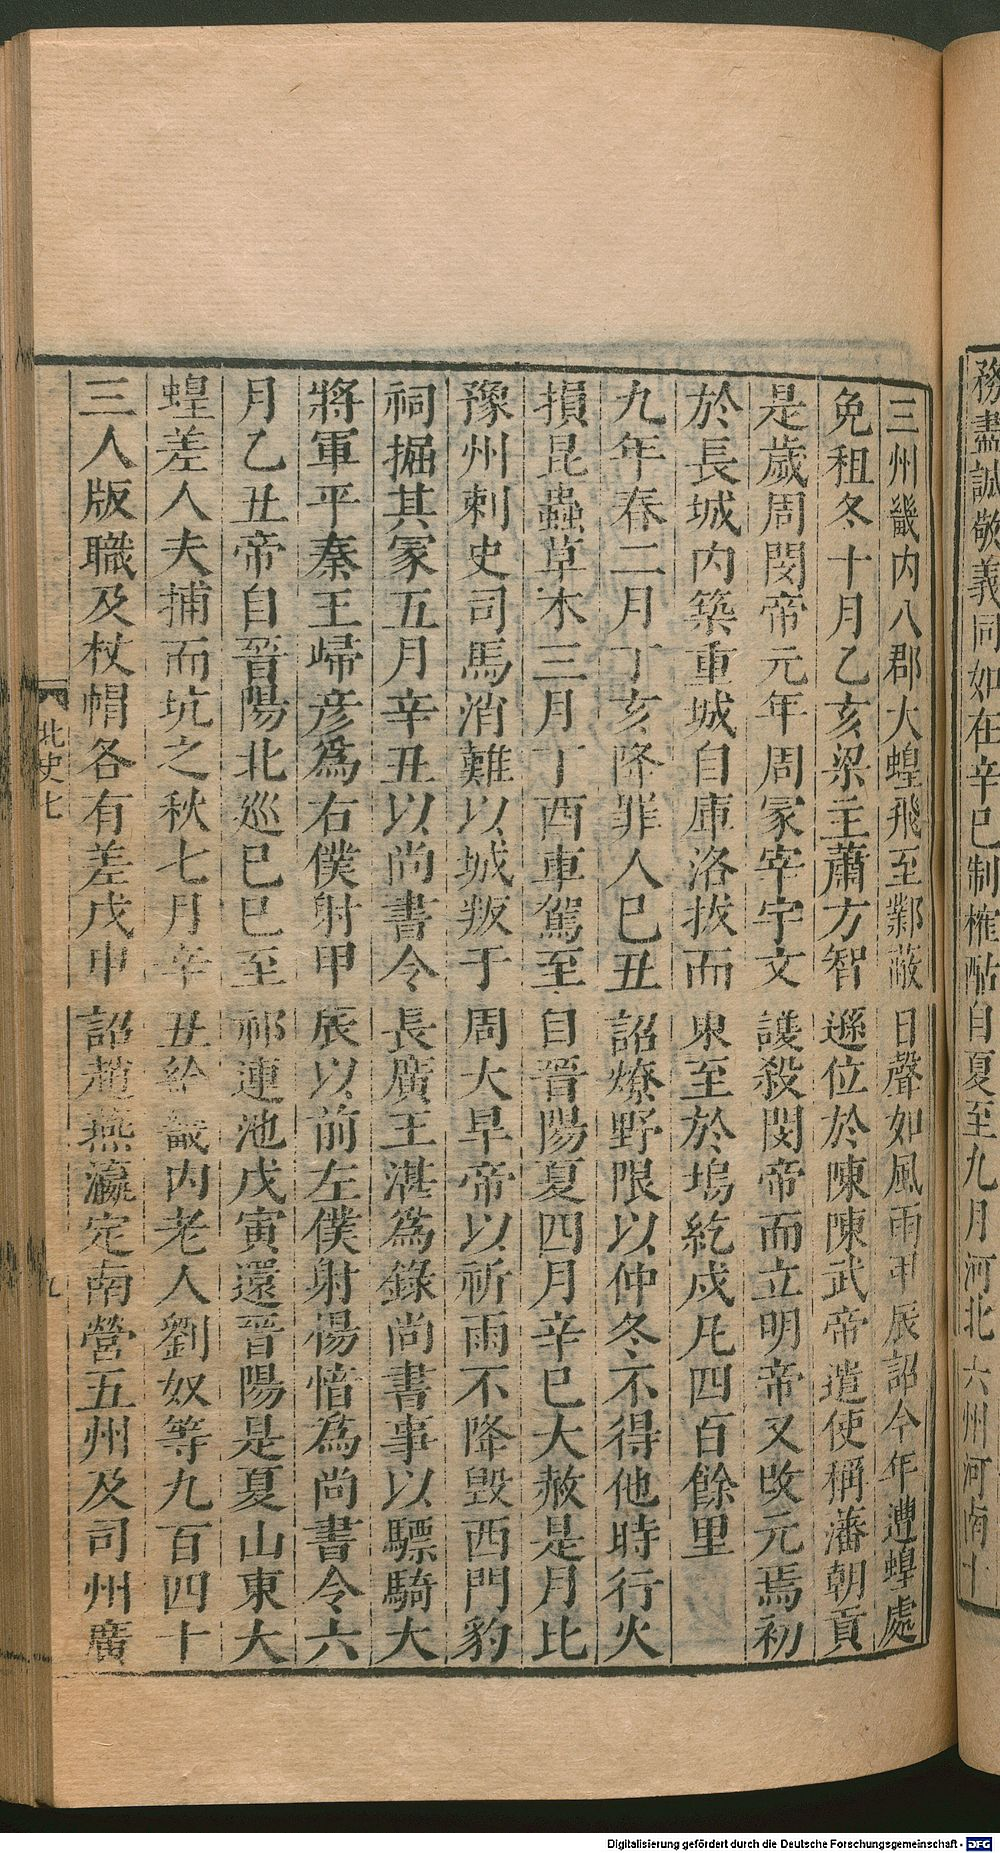 務盡誠敬義同如在辛巳制榷酤自夏至九月河北六州河南十
三州畿內八郡大蝗飛至鄴蔽日聲如風雨甲辰詔今年遭蝗處
免租冬十月乙亥梁主蕭方智遜位於陳陳武帝遣使稱藩朝貢
是歲周閔帝元年周冢宰宇文護殺閔帝而立明帝又改元焉初
於長城內築重城自庫洛拔而東至於塢紇戍凡四百餘里
九年春二月丁亥降罪人巳丑詔燎野限以仲冬不得他時行火
損昆蟲草木三月丁酉車駕至自晉陽夏四月辛巳大赦是月比
豫州刺史司馬消難以城叛于周大旱帝以祈雨不降毀西門豹
祠掘其冢五月辛丑以尚書令長廣王湛為錄尚書事以驃騎大
將軍平秦王歸彥為右僕射甲辰以前左僕射楊愔為尚書令六
月乙丑帝自晉陽北巡巳巳至祁連池戊寅還晉陽是夏山東大
蝗差人夫捕而坑之秋七月辛丑給畿內老人劉奴等九百四十
三人版職及杖帽各有差戊申詔趙燕瀛定南營五州及司州廣
北史七
九
Digitalisierung gefördert durch die Deutsche Forschungsgemeinschaft - DFG